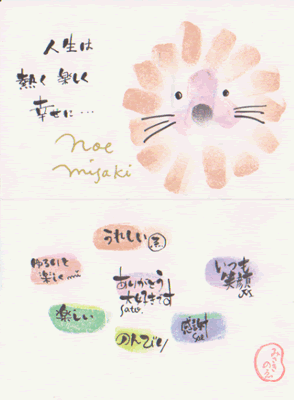 人生は
熱く楽しく
幸せに…
noe
misaki
うれしい
ゆるりと
楽しく
ありがとう
大好きです
sato.
いつも
笑顔
楽しい
のんびり
感謝
みさき
のえ